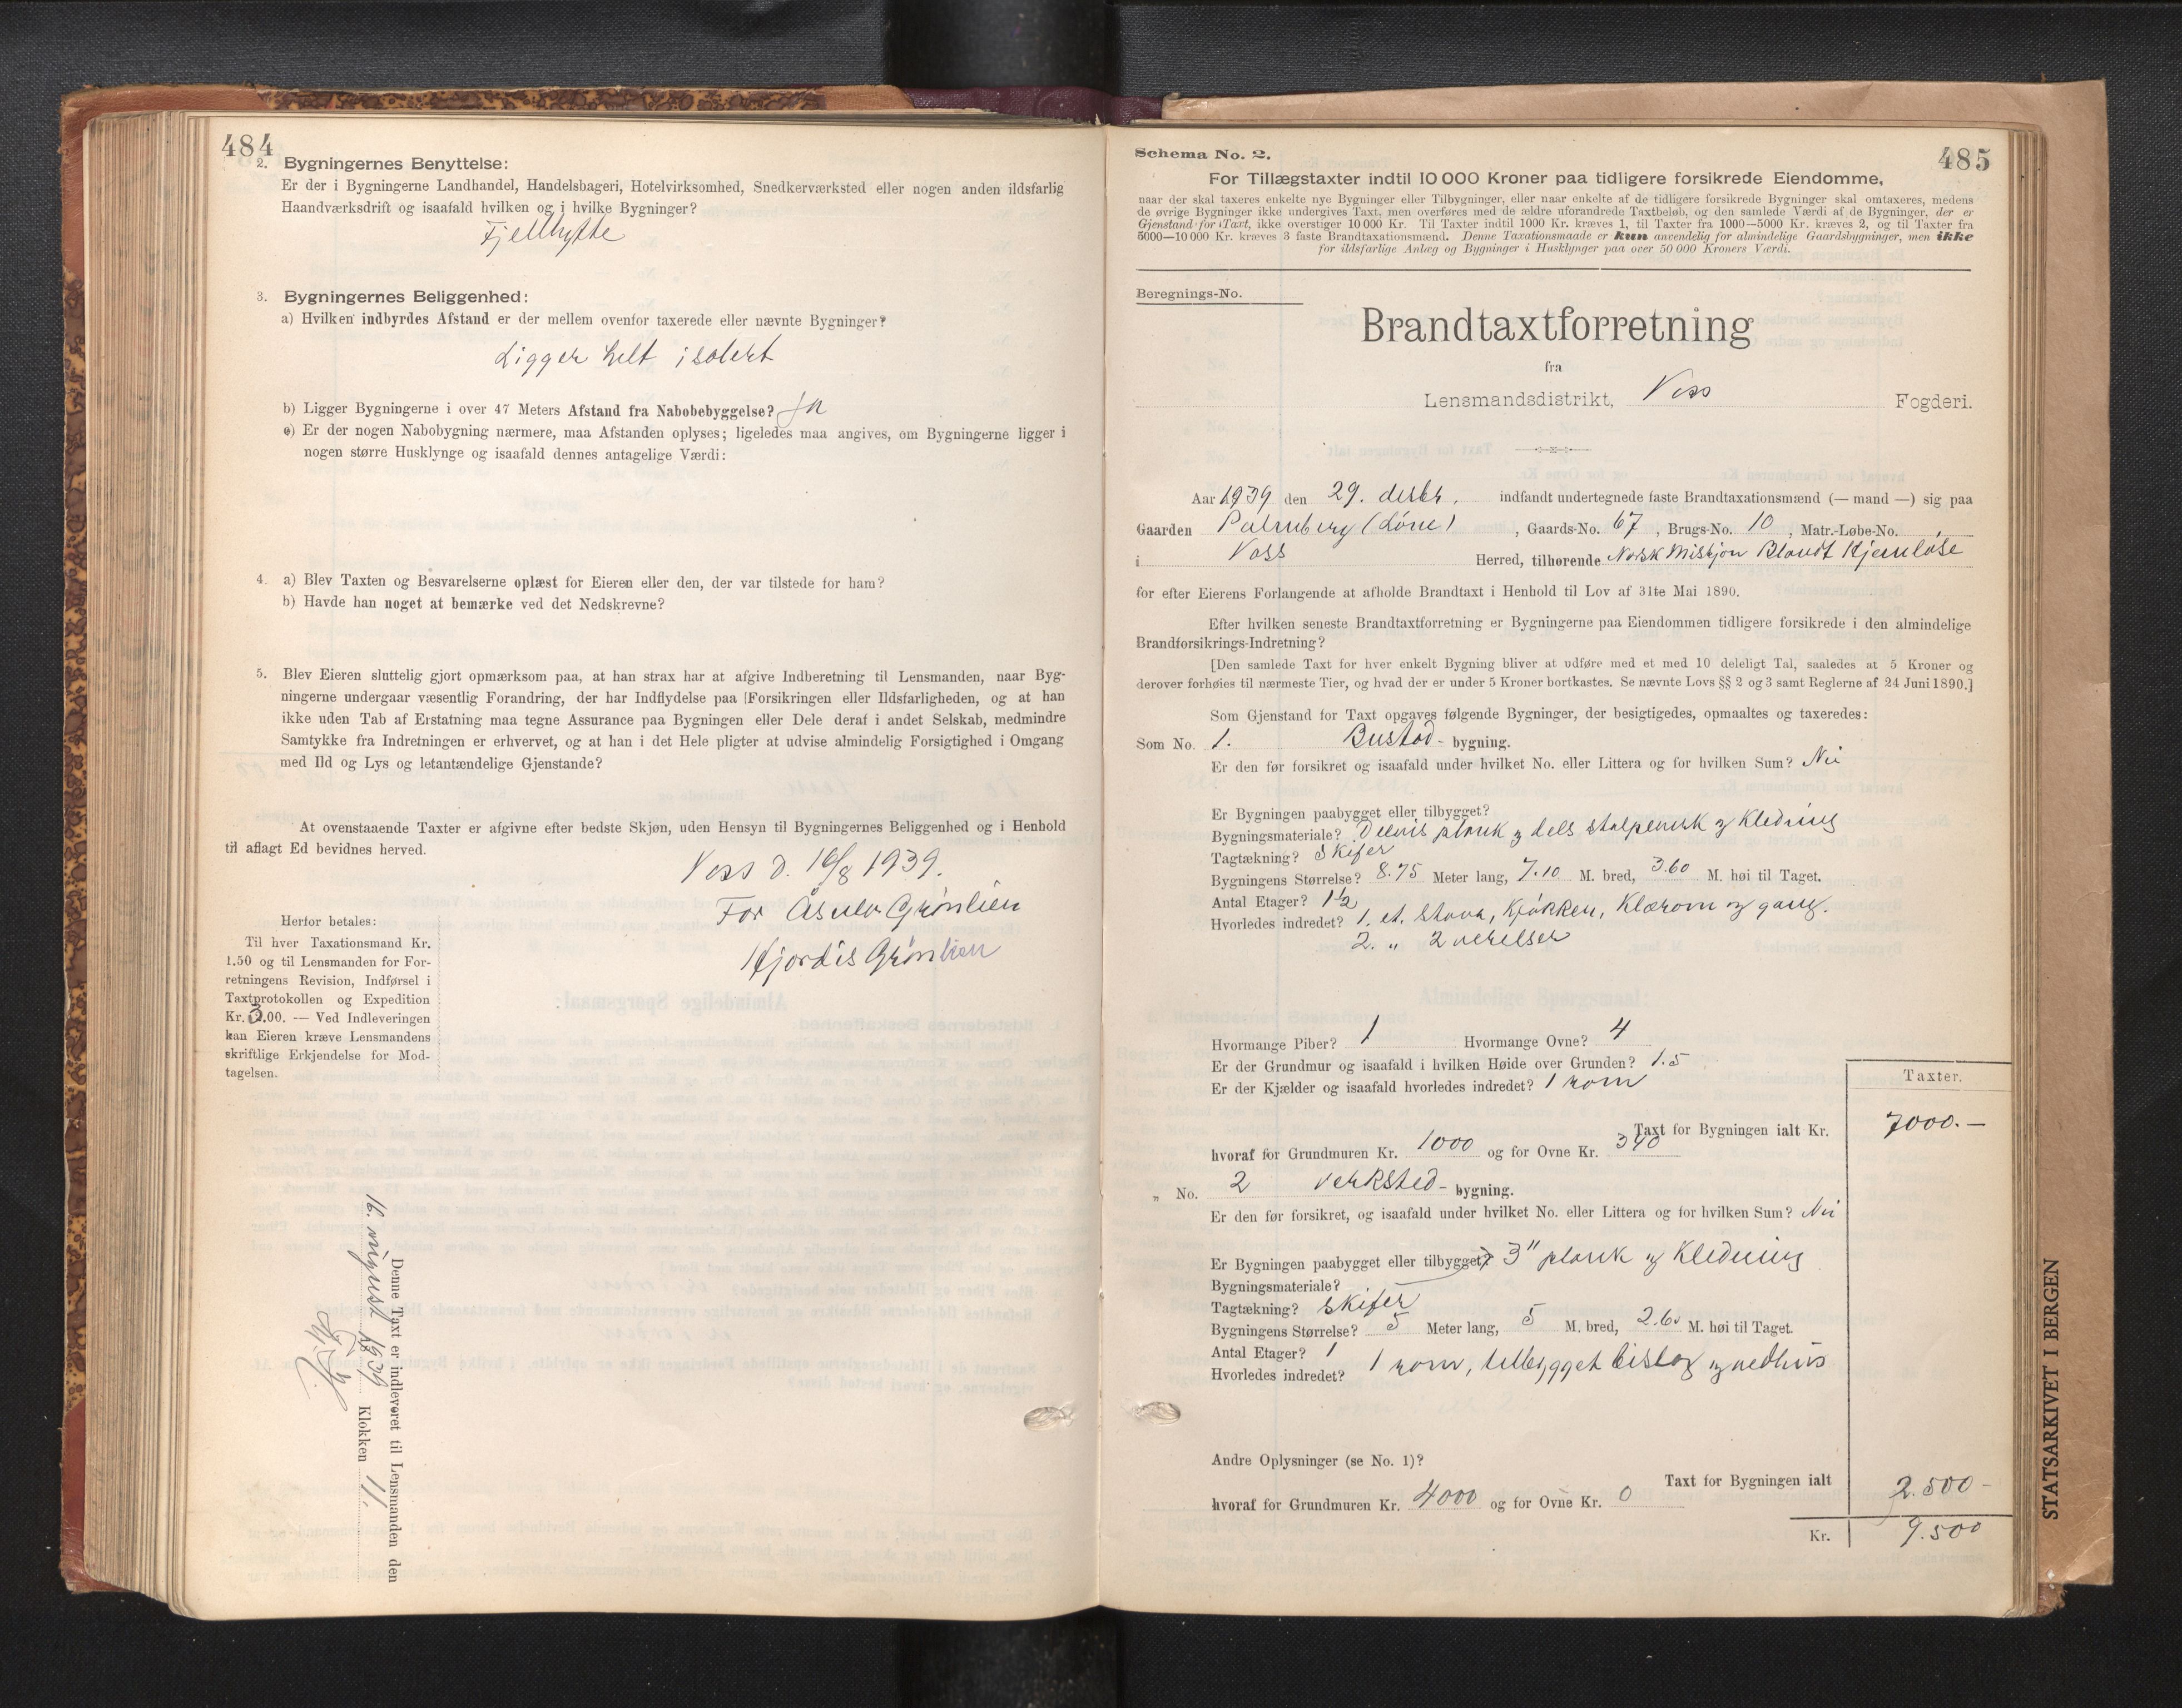 484
2. Bygningernes Benyttelse:
Er der i Bygningerne Landhandel, Handelsbageri, Hotelvirksomhed, Snedkerværksted eller nogen anden ildsfarlig
Haandværksdrift og isaafald hvilken og i hvilke Bygninger?
Fjellhytte
3. Bygningernes Beliggenhed:
a) Hvilken indbyrdes Afstand er der mellem ovenfor taxerede eller nævnte Bygninger?
Ligger helt isolert
b) Ligger Bygningerne i over 47 Meters Afstand fra Nabobebyggelse? Ja
c) Er der nogen Nabobygning nærmere, maa Afstanden oplyses; ligeledes maa angives, om Bygningerne ligger i
nogen større Husklynge og isaafald dennes antagelige Værdi:
4. a) Blev Taxten og Besvarelserne oplæst for Eieren eller den, der var tilstede for ham?
b) Havde han noget at bemærke ved det Nedskrevne?
5. Blev Eieren sluttelig gjort opmærksom paa, at han strax har at afgive Indberetning til Lensmanden, naar Byg-
ningerne undergaar væsentlig Forandring, der har Indflydelse paa Forsikringen eller Ildsfarligheden, og at han
ikke uden Tab af Erstatning maa tegne Assurance paa Bygningen eller Dele deraf i andet Selskab, medmindre
Samtykke fra Indretningen er erhvervet, og at han i det Hele pligter at udvise almindelig Forsigtighed i Omgang
med Ild og Lys og letantændelige Gjenstande?
At ovenstaaende Taxter er afgivne efter bedste Skjøn, uden Hensyn til Bygningernes Beliggenhed og i Henhold
til aflagt Ed bevidnes herved.
Voss d. 16/8 1939.
For Åsulv Grönlien
Hjordis Grönlien
Herfor betales:
Til hver Taxationsmand Kr.
1.50 og til Lensmanden for For-
retningens Revision, Indførsel i
Taxtprotokollen og Expedition
Kr. 3.00. — Ved Indleveringen
kan Eieren kræve Lensmandens
skriftlige Erkjendelse for Mod-
tagelsen.
Denne Taxt er indleveret til Lensmanden den
16. august 1939 Klokken 11.
485
Schema No. 2.
For Tillægstaxter indtil 10 000 Kroner paa tidligere forsikrede Eiendomme,
naar der skal taxeres enkelte nye Bygninger eller Tilbygninger, eller naar enkelte af de tidligere forsikrede Bygninger skal omtaxeres, medens
de øvrige Bygninger ikke undergives Taxt, men overføres med de ældre uforandrede Taxtbeløb, og den samlede Værdi af de Bygninger, der er
Gjenstand for Taxt, ikke overstiger 10 000 Kr. Til Taxter indtil 1000 Kr. kræves 1, til Taxter fra 1000—5000 Kr. kræves 2, og til Taxter fra
5000—10 000 Kr. kræves 3 faste Brandtaxationsmænd. Denne Taxationsmaade er kun anvendelig for almindelige Gaardsbygninger, men ikke
for ildsfarlige Anlæg og Bygninger i Husklynger paa over 50 000 Kroners Værdi.
Beregnings-No.
Brandtaxtforretning
fra
Lensmandsdistrikt, Voss Fogderi.
Aar 1939 den 29. desbr. indfandt undertegnede faste Brandtaxationsmænd (— mand —) sig paa
Gaarden Palmberg (Løne), Gaards-No. 67, Brugs-No. 10, Matr.-Løbe-No.
i Voss Herred, tilhørende Norsk Misjon Blandt Hjemløse
for efter Eierens Forlangende at afholde Brandtaxt i Henhold til Lov af 31te Mai 1890.
Efter hvilken seneste Brandtaxtforretning er Bygningerne paa Eiendommen tidligere forsikrede i den almindelige
Brandforsikrings-Indretning?
[Den samlede Taxt for hver enkelt Bygning bliver at udføre med et med 10 deleligt Tal, saaledes at 5 Kroner og
derover forhøies til nærmeste Tier, og hvad der er under 5 Kroner bortkastes. Se nævnte Lovs §§ 2 og 3 samt Reglerne af 24 Juni 1890.]
Som Gjenstand for Taxt opgaves følgende Bygninger, der besigtigedes, opmaaltes og taxeredes:
Som No. 1. Bustad-bygning.
Er den før forsikret og isaafald under hvilket No. eller Littera og for hvilken Sum? Nei
Er Bygningen paabygget eller tilbygget?
Bygningsmateriale? Delvis plank og dels stolpeverk og kledning
Tagtækning? Skifer
Bygningens Størrelse? 8.75 Meter lang, 7.10 M. bred, 3.60 M. høi til Taget.
Antal Etager? 1½
Hvorledes indredet? 1. et. stova, kjøkken, klærom og gang.
2. " 2 verelser
Hvormange Piber? 1 Hvormange Ovne? 4
Er der Grundmur og isaafald i hvilken Høide over Grunden? 1.5
Er der Kjælder og isaafald hvorledes indredet? 1 rom
Taxter.
Taxt for Bygningen ialt Kr. 7000.—
hvoraf for Grundmuren Kr. 1000 og for Ovne Kr. 340
" No. 2 verksted-bygning.
Er den før forsikret, og isaafald under hvilket No. eller Littera og for hvilken Sum? Nei
Er Bygningen paabygget eller tilbygget? 3" plank og kledning
Bygningsmateriale?
Tagtækning? skifer
Bygningens Størrelse? 5 Meter lang, 5 M. bred, 2.60 M. høi til Taget.
Antal Etager? 1
Hvorledes indredet? 1 rom, tilbygget bislag og vedhus
Andre Oplysninger (se No. 1)?
Taxt for Bygningen ialt 2.500-
hvoraf for Grundmuren Kr. 4000 og for Ovne Kr. 0
Kr. 9.500
STATSARKIVET I BERGEN